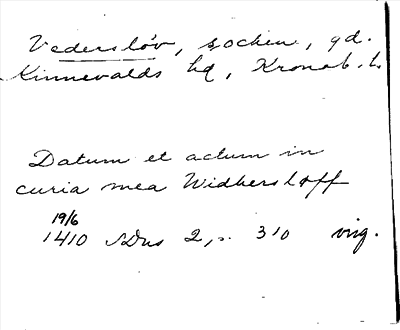 Vederslöv, socken, gd.
Kinnevalds hd, Kronob. l.
Datum et actum in
curia mea Widhersloff
19/6
1410 SDns 2, s. 310 orig.